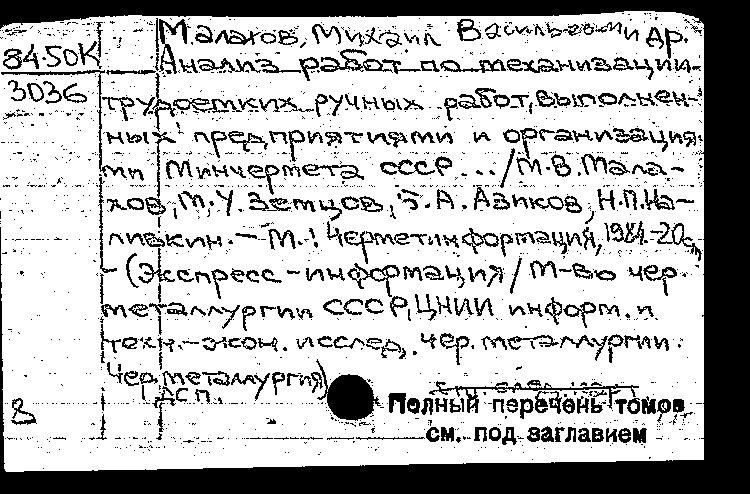 Малахов, Михаил Васильевич и др.
84-50К
Анализ работ по механизации
3036
трудоемких ручных работ, выполнен-
ных предприятиями и организация-
ми Минчермета СССР .../М.В.Мала-
хов, М.У.Земцов, Б.А.Азиков, Н.П.На-
ливкин. – М.: Черметинформация, 1984.-20с.,
- (Экспресс-информация / М-во чер.
металлургии СССР, ЦНИИ информ. и
техн.-экон. исслед. чер. металлургии.
Чер. металлургия)
ДСП.
Полный перечень томов
см. под заглавием